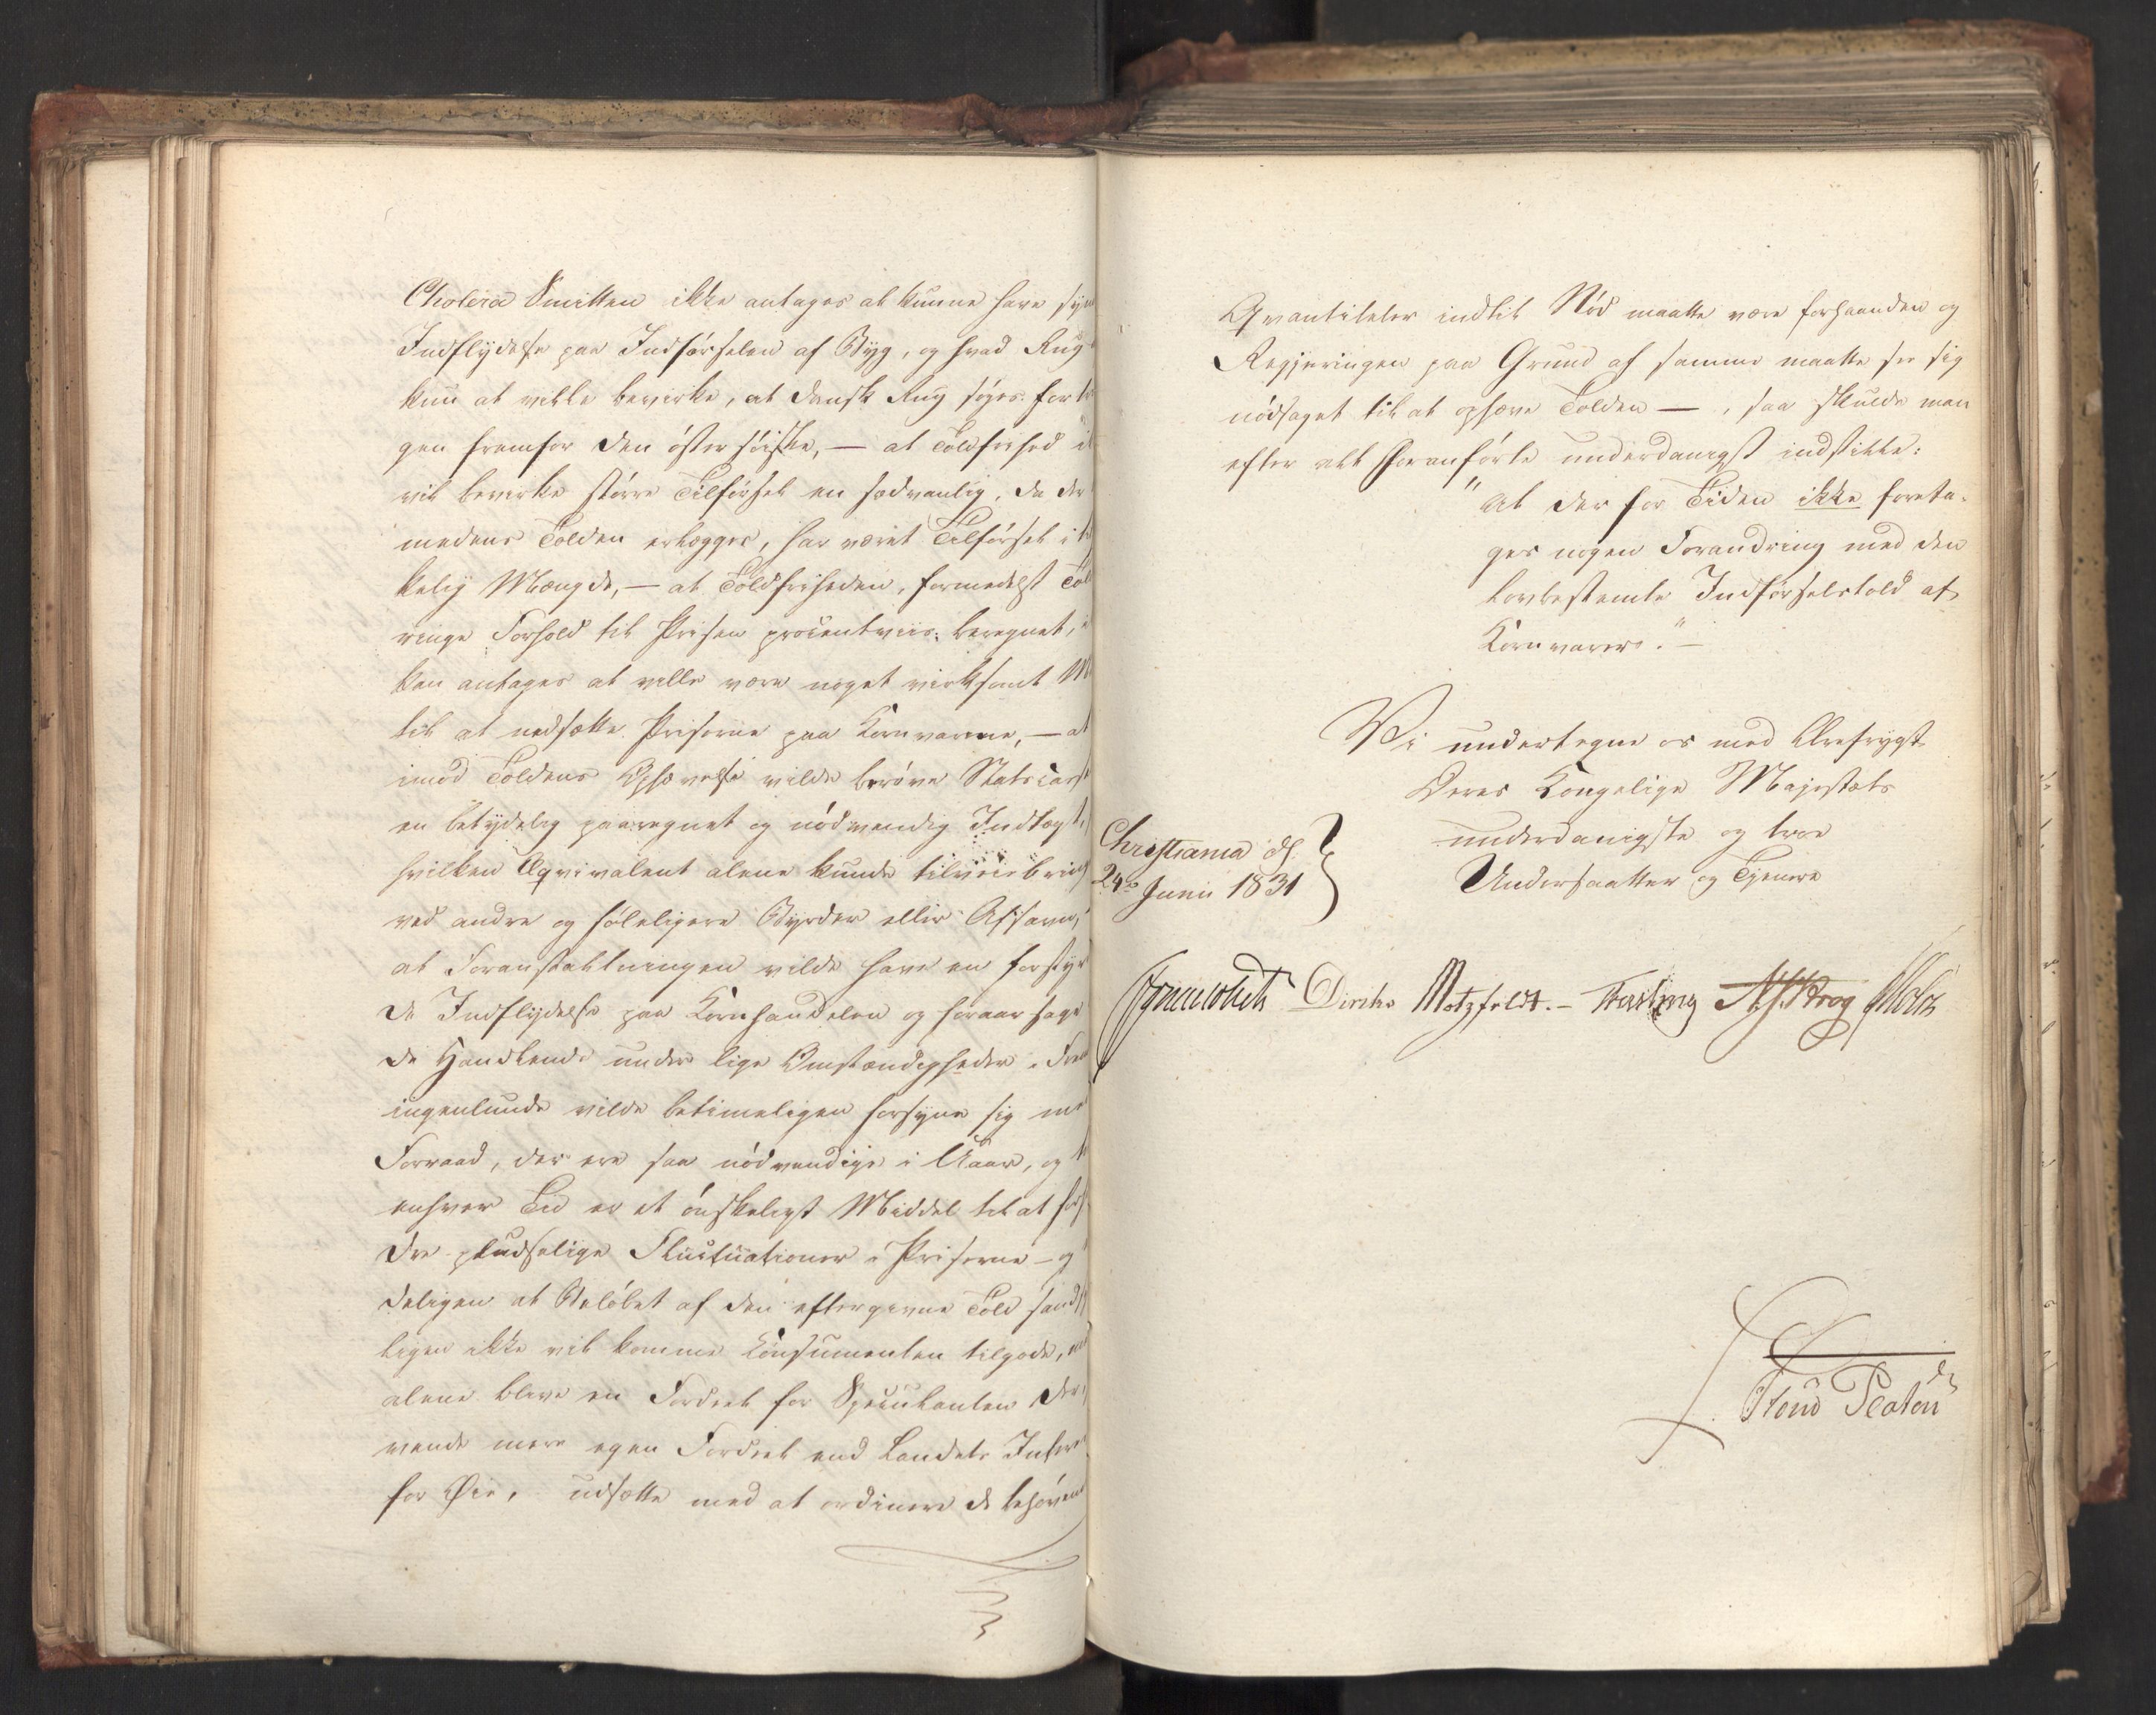 Cholera Smitten ikke antages at kunne have syn
Indflydelse paa Indførselen af Byg, og hvad Rug
kun at ville bevirke, at dansk Rug søges fortri
gen fremfor den østersøiske, — at Toldfrihed i
vil bevirke større Tilførsel en sædvanlig, da der
medens Tolden erlægges, har været Tilførsel i
kelig Mængde, — at Toldfriheden, formedelst Tol
ringe Forhold til Prisen procentviis beregnet, i
kan antages at ville være noget virksomt M
til at nedsætte Priserne paa Kornvarene, — at
imod Toldens Ophævelse vilde berøve Statscass
en betydelig paaregnet og nødvendig Indtægt,
hvilken Æqvivalent alene kunde tilveiebring
ved andre og føleligere Byrder eller Afsavn,
at Foranstaltningen vilde have en forstyr
de Indflydelse paa Kornhandelen og foraarsage
de Handlende under lige Omstændigheder i Frem
ingenlunde vilde betimeligen forsyne sig me
Forraad, der ere saa nødvendige i Uaar, og
enhver Tid er et ønskeligt Middel til at for
dre pludselige Fluctuationer i Priserne — og
deligen at Beløbet af den eftergivne Told sands
ligen ikke vil komme Consumenten tilgode, m
alene blive en Fordeel for Speculanten der,
vende mere egen Fordeel end Landets Inter
for Øie, udsætte med at ordinere de behøven
Qvantiteter indtil Nød maatte være forhaanden og
Regjeringen paa Grund af samme maatte see sig
nødsaget til at ophæve Tolden — , saa skulde man
efter alt Foranførte underdanigst indstille:
"At der for Tiden ikke foreta-
ges nogen Forandring med den
lovbestemte Indførselstold af
Kornvarer." —
Vi undertegne os med Ærefrygt
Deres Kongelige Majestæts
underdanigste og troe
Undersaatter og Tjenere
Christiania d.
24de Junii 1831
Collett Diriks Motzfeldt. — Fasting Krog Holst
Frid Platou